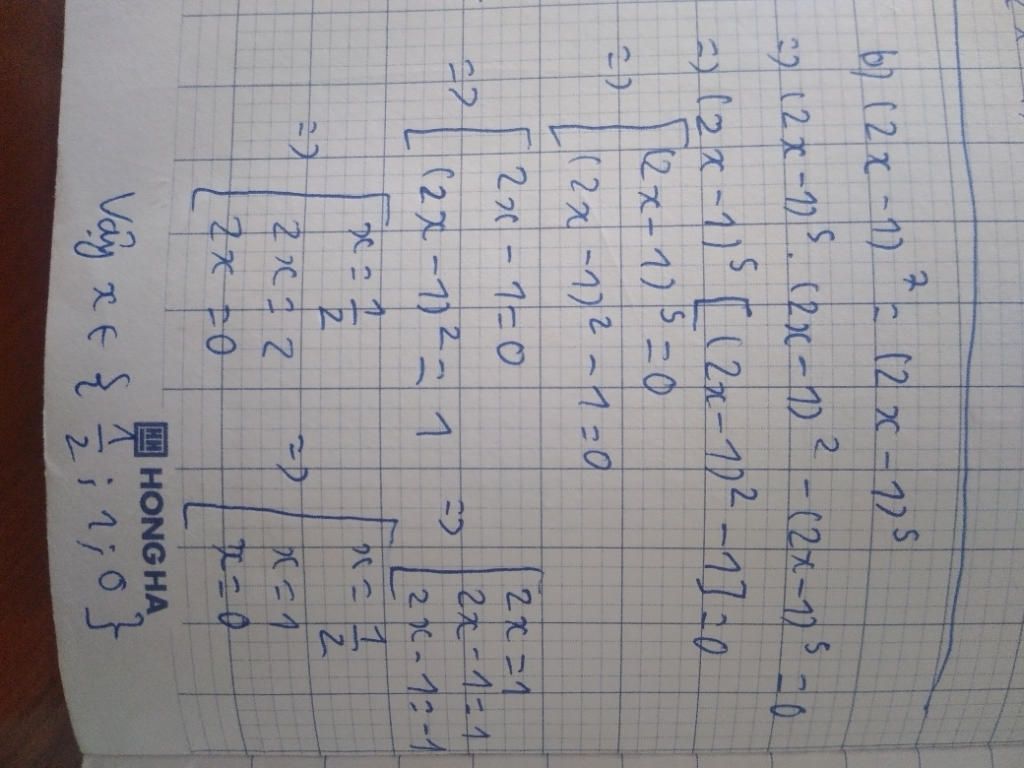 b) (2x - 1)⁷ = (2x - 1)⁵
=> (2x - 1)⁵ . (2x - 1)² - (2x - 1)⁵ = 0
=> (2x - 1)⁵ [ (2x - 1)² - 1 ] = 0
=> [ (2x - 1)⁵ = 0
(2x - 1)² - 1 = 0
=> [ 2x - 1 = 0
(2x - 1)² = 1
=> [ 2x = 1
2x - 1 = 1
2x - 1 = -1
=> [ x = 1/2
2x = 2
2x = 0
=> [ x = 1/2
x = 1
x = 0
Vậy x ∈ { 1/2 ; 1 ; 0 }
HONG HA